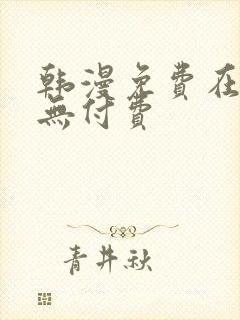 韩漫免费在
無付费
青井秋